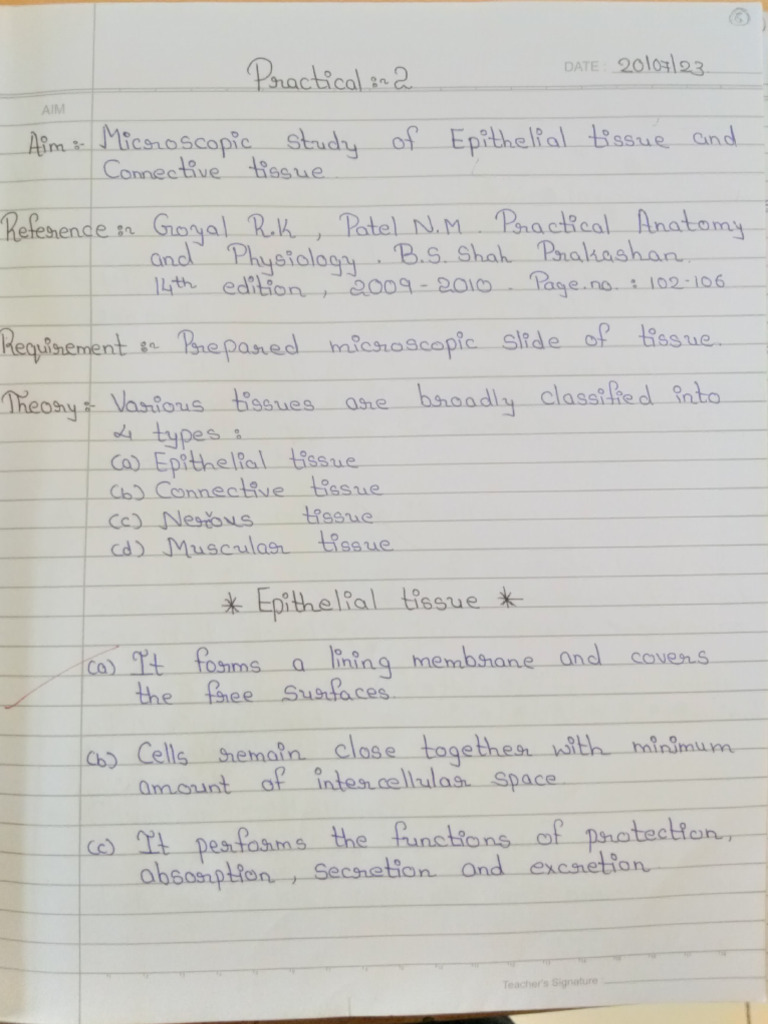 5
Practical :- 2
DATE : 20/07/23
AIM
Aim :- Microscopic study of Epithelial tissue and
Connective tissue
Reference :- Goyal R.K , Patel N.M. Practical Anatomy
and Physiology . B.S. Shah Prakashan.
14th edition , 2009-2010 . Page.no. : 102-106
Requirement :- Prepared microscopic slide of tissue.
Theory :- Various tissues are broadly classified into
4 types :
(a) Epithelial tissue
(b) Connective tissue
(c) Nervous tissue
(d) Muscular tissue
* Epithelial tissue *
(a) It forms a lining membrane and covers
the free surfaces.
(b) Cells remain close together with minimum
amount of intercellular space
(c) It performs the functions of protection,
absorption , secretion and excretion
Teacher's Signature